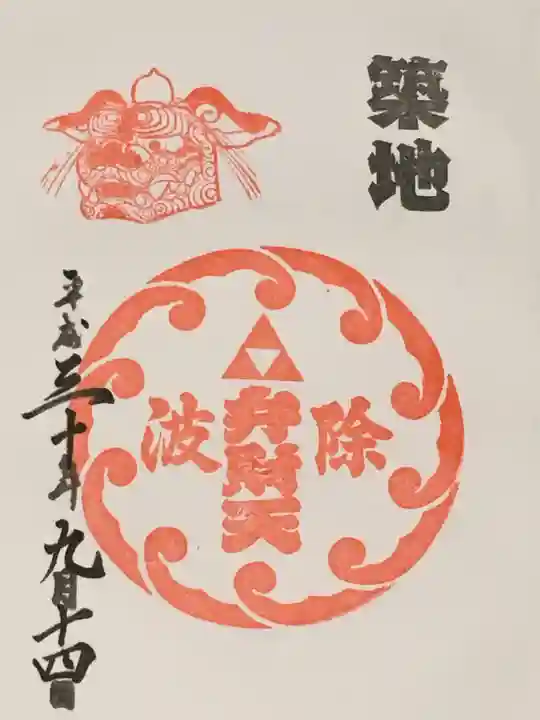 築地
除
弁財天
波
平成三十年九月十四日